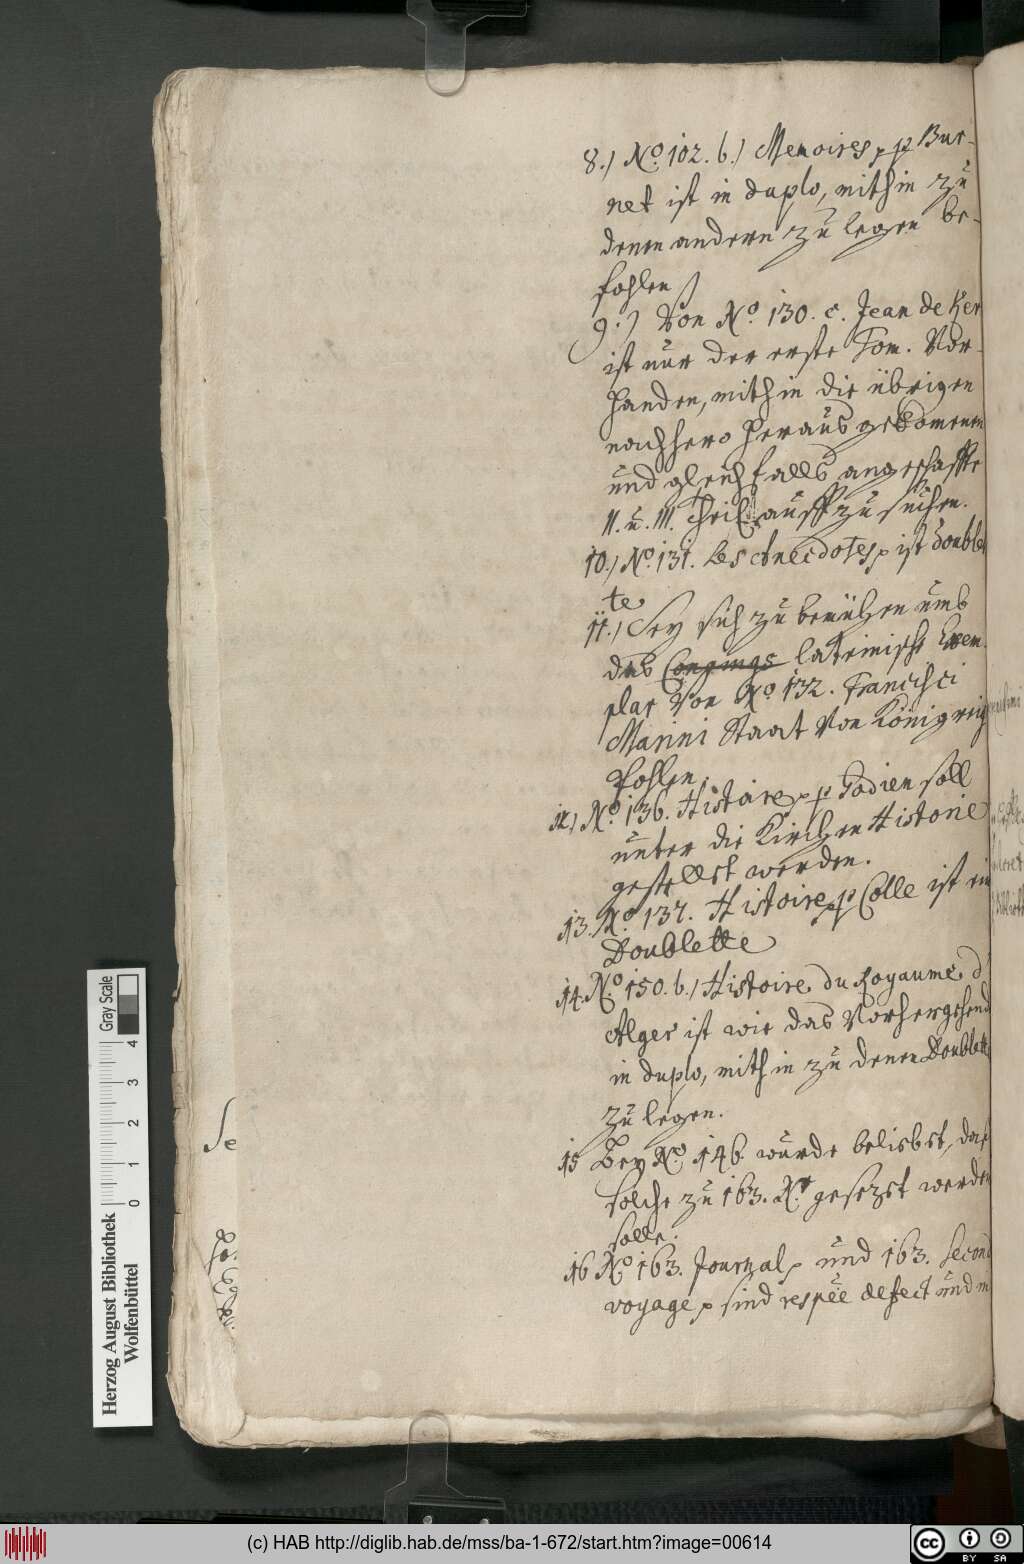 8.) No. 102. b.) Memoires p p Bur-
net ist in duplo, mithin zu
denen andern zu legen be-
fohlen
9.) Von No. 130. c. Jean de Ker
ist nur der erste Tom. vor-
handen, mithin die übrigen
nachhero heraus gekomenen
und gleichfalls angeschaffte
II. u. III. Theil auffzusuchen.
10.) No. 131. Les Anecdotes p ist Doublet
te
11.) Sey sich zu bemühen umb
das lateinische Exem-
plar von No. 132. Francisci
Marini Staat von Königreich
fohlen.
12.) No. 136. Histoire p p Godien soll
unter die Kirchen Historie
gestellet werden.
13. No. 137. Histoire p p Colle ist ein
Doublette
14. No. 150. b.) Histoire du Royaume d'
Alger ist wie das Vorhergehend
in duplo, mithin zu denen Doublett
zu legen.
15 Bey No. 146. wurde beliebet, daß
solche zu 163. Nr. gesezet werden
solle.
16 No. 163. Journal p und 163. second
voyage p sind respée defect und
Se
Herzog August Bibliothek
Wolfenbüttel
0 1 2 3 4
Gray Scale
(c) HAB http://diglib.hab.de/mss/ba-1-672/start.htm?image=00614
cc BY SA